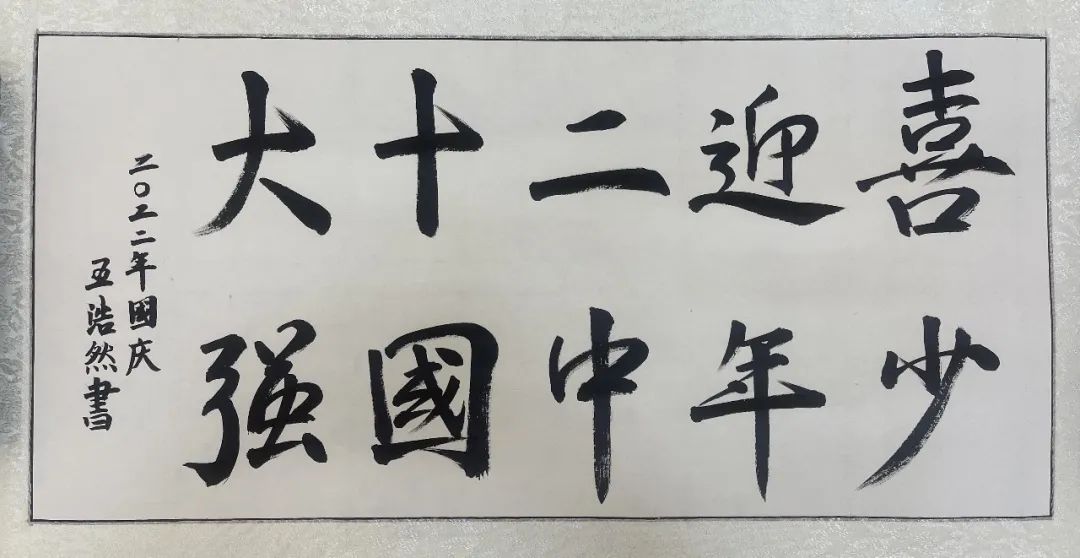 喜迎二十大
少年中國强
二〇二二年國庆
王浩然書